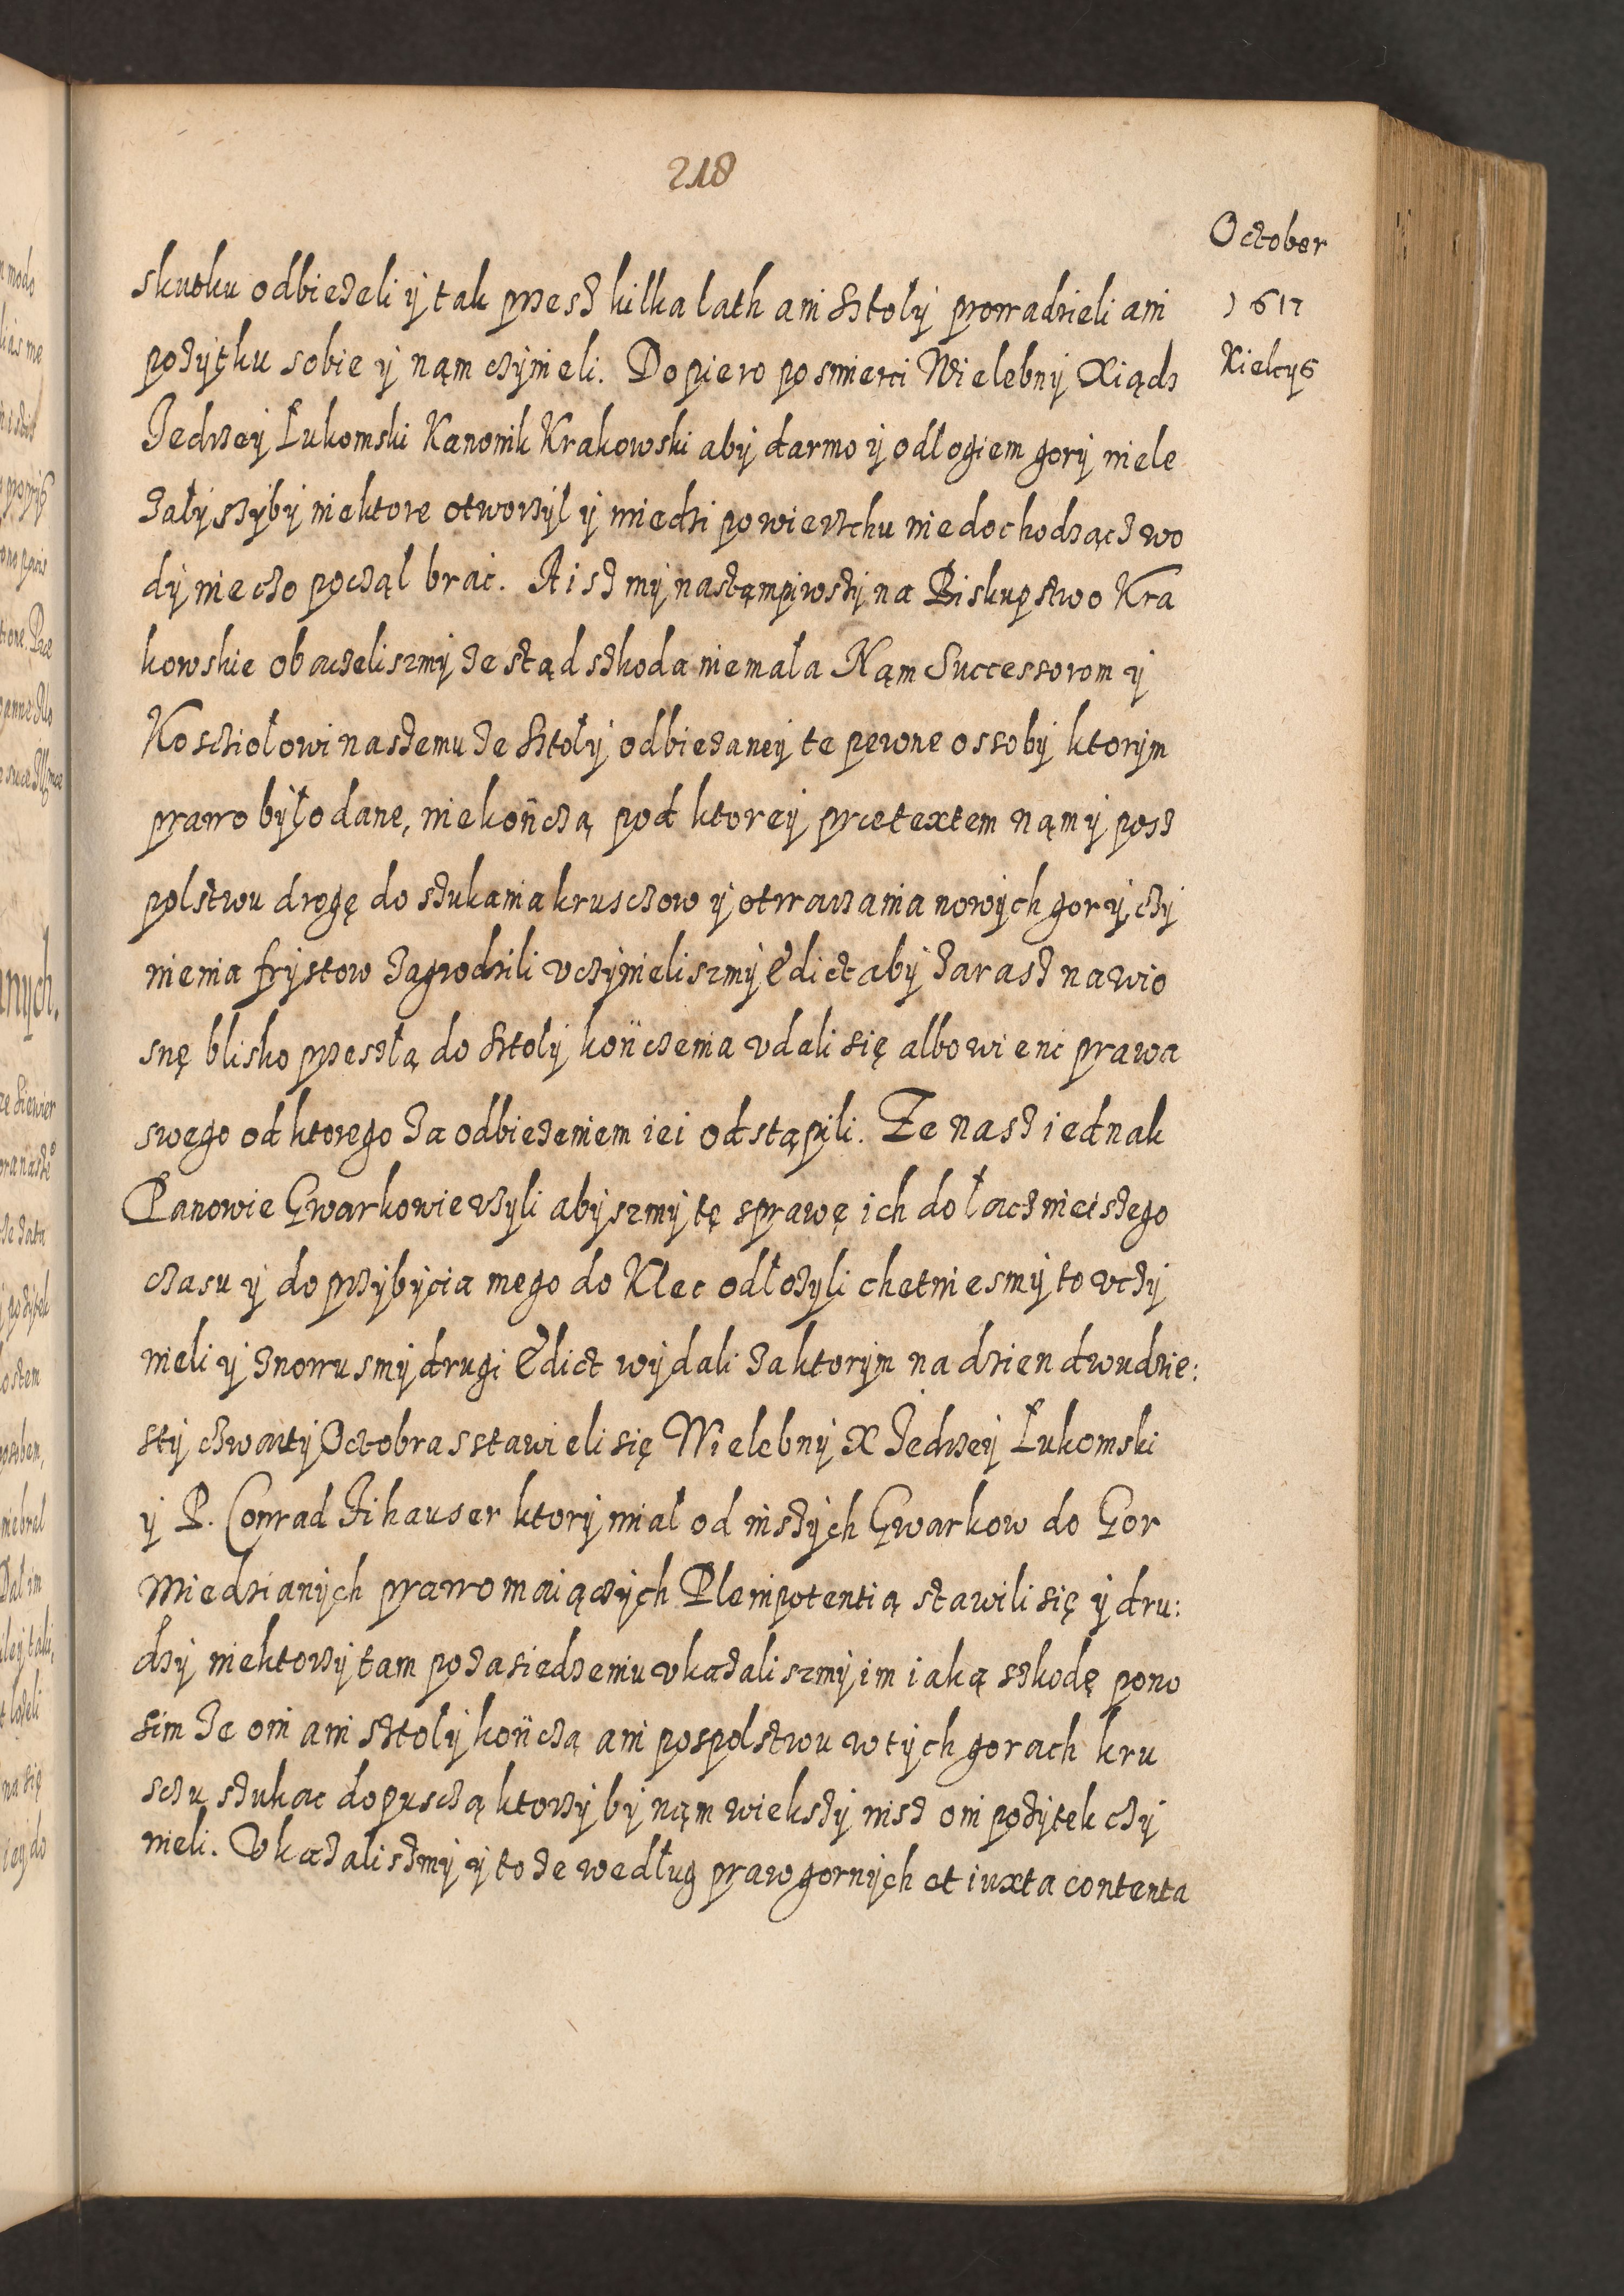 218
October
1617
Kielcys
skutku odbiezeli y tak przesz kilka lath ani sztoly prowadzieli ani
pozytku sobie y nąm czynieli. Dopiero po smierci Wielebny Xiądz
Jedrzey Łukomski Kanonik Krakowski aby darmo y odłogiem gory niele
zały szyby niektore otworzyl y miedzi powierzchu niedochodzącz wo
dy nieczo począl brac. A isz my nastąmpiwszy na Biskupstwo Kra
kowskie obaczeliszmy ze stąd szkoda niemała Nąm Successorom y
Kosciołowi naszemu ze sztoły odbiezaney te pewne ossoby ktorym
prawo było dane, niekończą pod ktorey prætextem nąm y posz
polstwu drogę do szukania krusczow y otwarzania nowych gor y czy
nienia frystow zagrodzili vczynieliszmy Edict aby zarasz na wio
snę blisko przeszłą do sztoły kończenia vdali się albo wienc prawa
swego od ktorego za odbiezeniem iei odstąpili. Ze nasz iednak
Panowie Gwarkowie vzyli abyszmy tę sprawę ich do łaczneiszego
czasu y do przybycia mego do Klec odłozyli chetnie smy to vczy
nieli y znowu smy drugi Edict wydali za ktorym na dzien dwudzie:
sty czwarty Octobra sstawieli się Wielebny X Jedrzey Łukomski
y P. Conrad Jihauser ktory mial od inszych Gwarkow do Gor
Miedzianych prawo maiączych Plenipotentią stawili się y dru:
dzy niektorzy tam po zasiedzeniu vkazaliszmy im iaką szkodę pono
sim ze oni ani sztoly kończą ani pospolstwu w tych gorach kru
sczu szukac dopusczą ktorzy by nąm wiekszy nisz oni pozytek czy
nieli. Vkazaliszmy y to ze według praw gornych et iuxta contenta